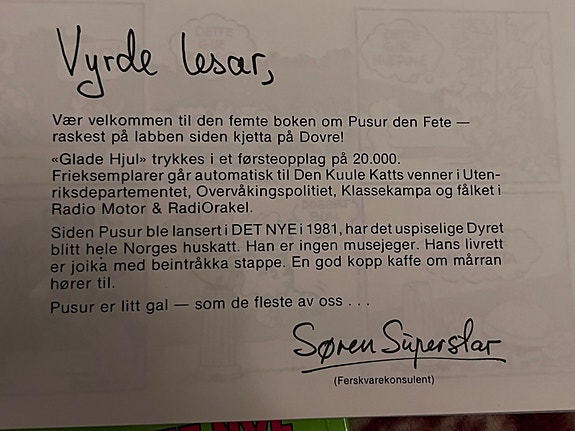 Vyrde lesar,
Vær velkommen til den femte boken om Pusur den Fete —
raskest på labben siden kjetta på Dovre!
«Glade Hjul» trykkes i et førsteopplag på 20.000.
Frieksemplarer går automatisk til Den Kuule Katts venner i Uten-
riksdepartementet, Overvåkingspolitiet, Klassekampa og fålket i
Radio Motor & RadiOrakel.
Siden Pusur ble lansert i DET NYE i 1981, har det uspiselige Dyret
blitt hele Norges huskatt. Han er ingen musejeger. Hans livrett
er joika med beintråkka stappe. En god kopp kaffe om mårran
hører til.
Pusur er litt gal — som de fleste av oss . . .
Søren Superstar
(Ferskvarekonsulent)
NYE